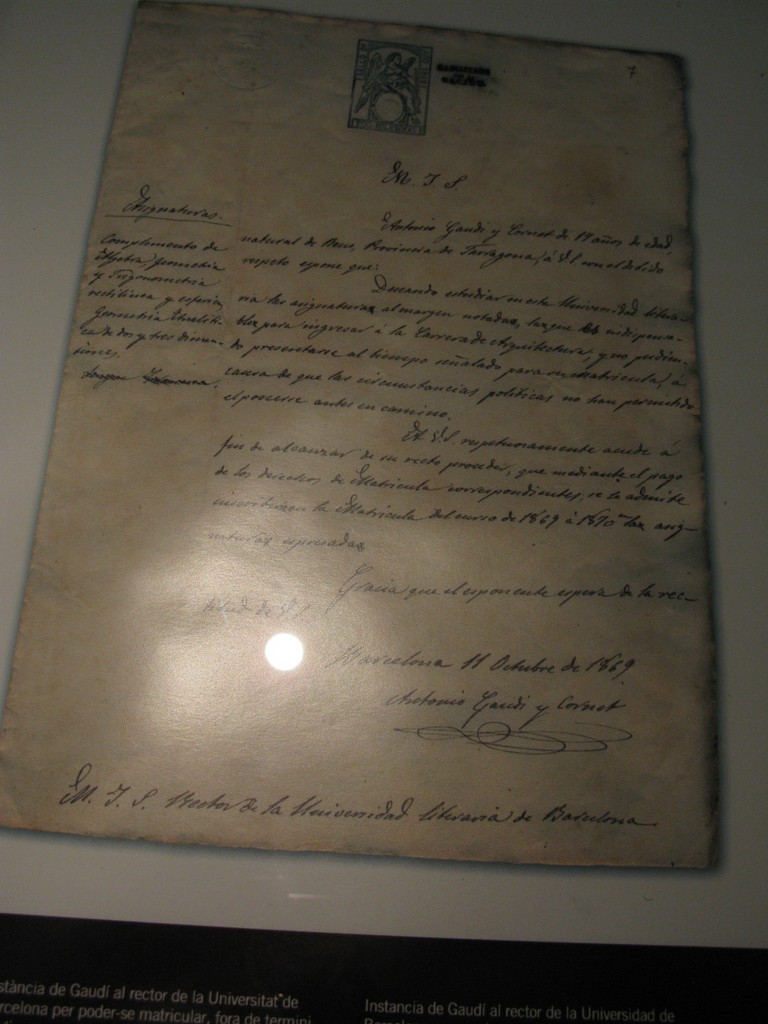 7
M. I. S.
Asignaturas.
Complemento de
Algebra, Geometria
y Trigonometria
rectilinea y esferica
Geometria Analiti-
ca de dos y tres dimen-
siones.
Antonio Gaudí y Cornet de 17 años de edad,
natural de Reus, Provincia de Tarragona, á V.S. con el debido
respeto espone que:
Deseando estudiar en esta Universidad litera-
ria las asignaturas al margen notadas, las que indispensa-
bles para ingresar á la Carrera de Arquitectura, y no pudien-
do presentarse al tiempo señalado para su Matricula, á
causa de que las circunstancias politicas no han permitido
el ponerse antes en camino.
A V.S. respetuosamente acude á
fin de alcanzar de su recto proceder, que mediante el pago
de los derechos de Matricula correspondientes, se le admita
inscribir en la Matricula del curso de 1869 á 1870 las asig-
naturas espresadas
Gracia que el esponente espera de la rec-
titud de V.S.
Barcelona 11 Octubre de 1869
Antonio Gaudí y Cornet
M. I. S. Rector de la Universidad literaria de Barcelona
stància de Gaudí al rector de la Universitat de
rcelona per poder-se matricular, fora de termini
Instancia de Gaudí al rector de la Universidad de